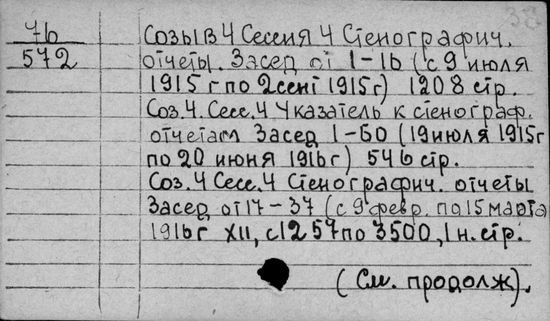 38
76 Созыв 4 Сессия 4 Стенографич.
572 отчеты. Засед от 1-16 (с 9 июля
1915 г по 2 сент 1915 г) 1208 стр.
Соз. 4. Сесс. 4 Указатель к стеногр аф.
отчетам Засед 1-60 (19 июля 1915 г
по 20 июня 1916 г) 546 стр.
Соз. 4 Сесс. 4 Стенографич. отчеты
Засед от 17-37 (с 9 февр. по 15 марта
1916 г XII, с 1257 по 3500, 1 н. стр.
(См. продолж).